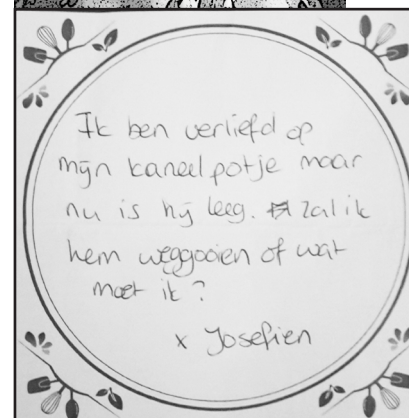 Ik ben verliefd op
mijn kaneelpotje maar
nu is hij leeg. zal ik
hem weggooien of wat
moet ik?
x Josefien